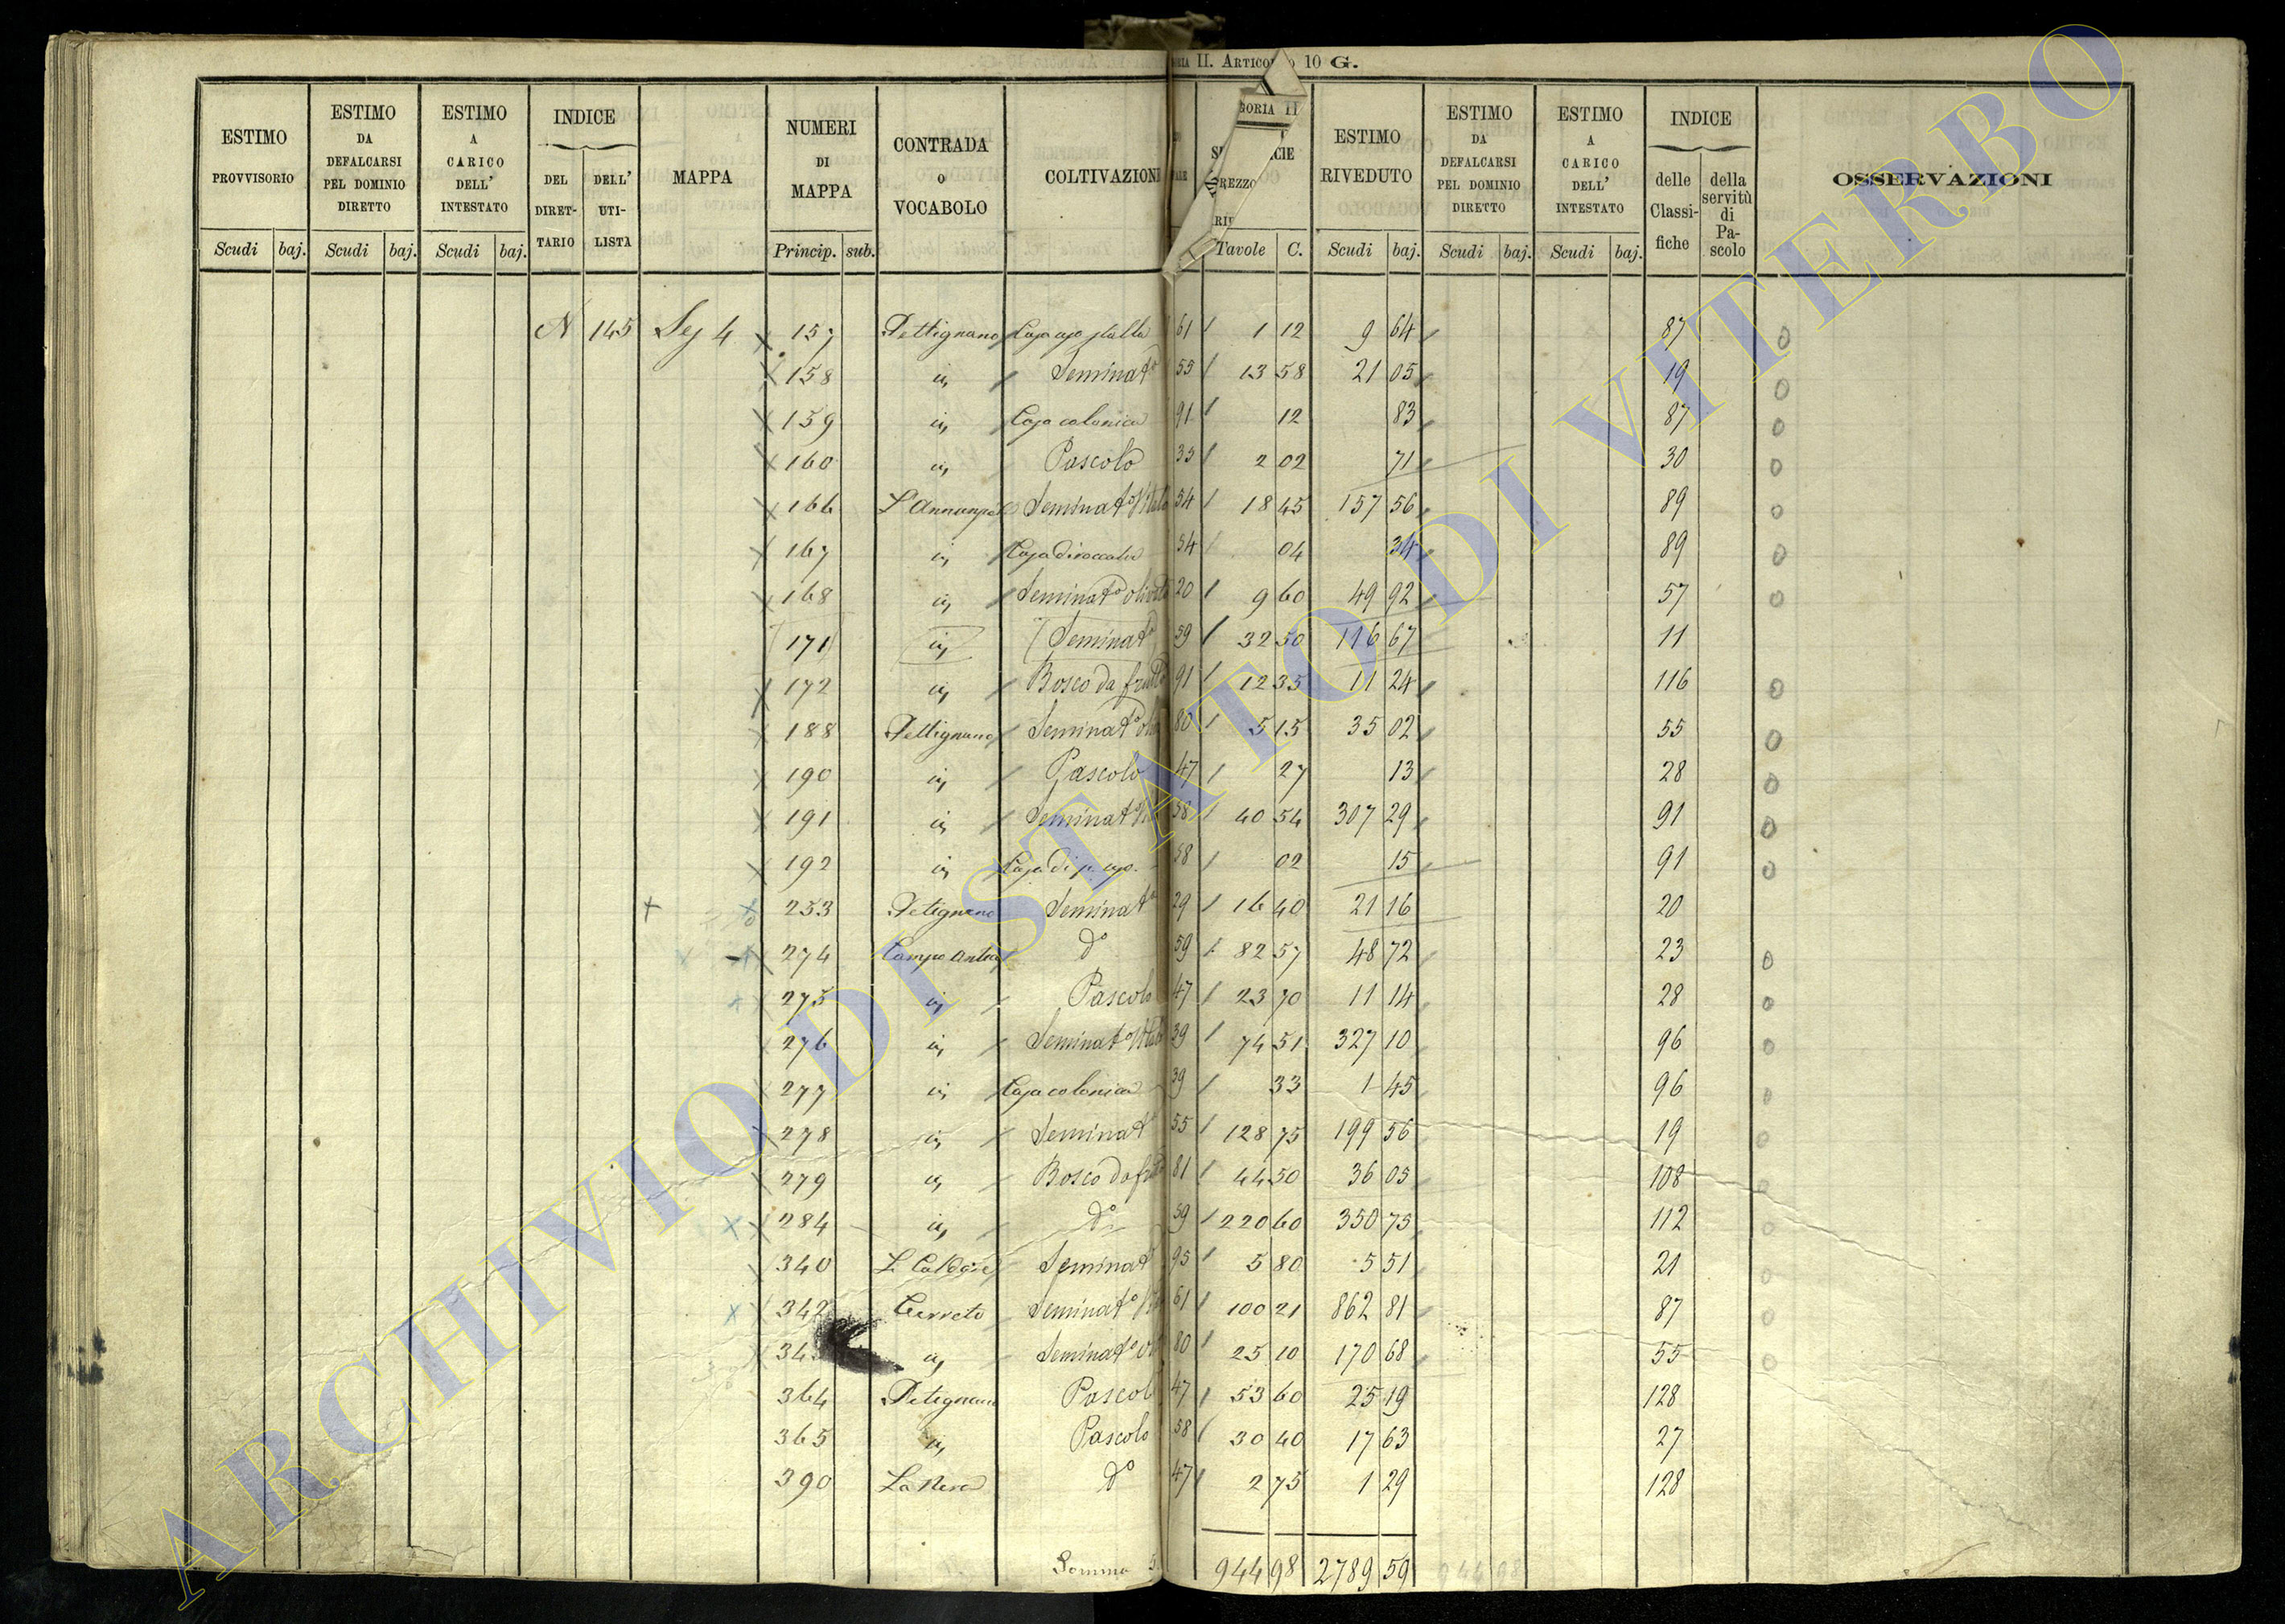 II. ARTICO O 10 G.
ESTIMO PROVVISORIO
ESTIMO DA DEFALCARSI PEL DOMINIO DIRETTO
ESTIMO A CARICO DELL' INTESTATO
INDICE
DEL DIRET- TARIO
DELL' UTI- LISTA
MAPPA
NUMERI DI MAPPA
CONTRADA o VOCABOLO
COLTIVAZIONI
GORIA II
CIE
REZZO
ESTIMO RIVEDUTO
ESTIMO DA DEFALCARSI PEL DOMINIO DIRETTO
ESTIMO A CARICO DELL' INTESTATO
INDICE
delle Classi- fiche
della servitù di Pa- scolo
OSSERVAZIONI
Scudi baj. Scudi baj. Scudi baj. Princip. sub. Tavole C. Scudi baj. Scudi baj. Scudi baj.
N 145 Sez 4 157 Pettignano Casa uso stalla 61 1 12 9 64 87
158 id Seminato 55 13 58 21 05 19
159 id Casa colonica 91 12 83 87
160 id Pascolo 35 2 02 71 30
166 Seminato Vitato 54 18 45 157 56 89
167 id Casa diroccata 54 04 34 89
168 id Seminato olivato 20 9 60 49 92 57
171 id Seminato 59 32 50 116 67 11
172 id Bosco da frutto 91 12 35 11 24 116
188 Pettignano Seminato 80 5 15 35 02 55
190 id Pascolo 47 27 13 28
191 id Seminato 58 40 54 307 29 91
192 id Casa di p. uso 58 02 15 91
253 Petignano Seminato 29 16 40 21 16 20
274 Campo Antico do 59 82 57 48 72 23
275 id Pascolo 47 23 70 11 14 28
276 id Seminato Vitato 39 74 51 327 10 96
277 id Casa colonica 39 33 1 45 96
278 id Seminato 55 128 75 199 56 19
279 id Bosco da frutto 81 44 50 36 05 108
284 id do 59 220 60 350 75 112
340 Seminato 95 5 80 5 51 21
342 Cerreto Seminato 61 100 21 862 81 87
34 id Seminato 80 25 10 170 68 55
364 Petignano Pascolo 47 53 60 25 19 128
365 id Pascolo 58 30 40 17 63 27
390 La Nera do 47 2 75 1 29 128
Somma 944 98 2789 59 944 98
ARCHIVIO DI STATO DI VITERBO